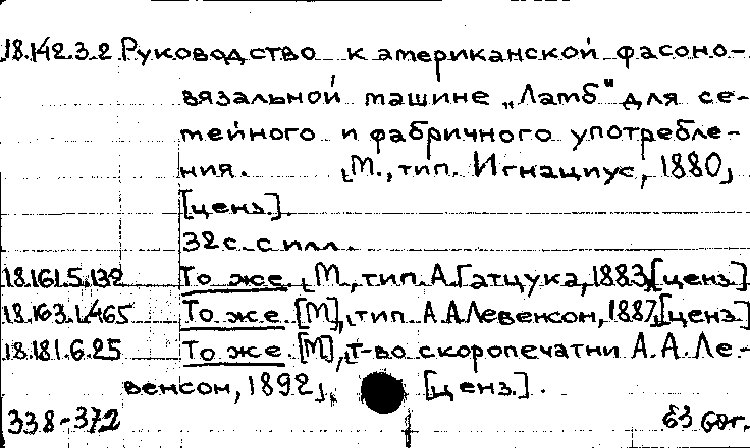 18.142.3.2 Руководство к американской фасоно-
вязальной машине „Ламб" для се-
мейного и фабричного употребле-
ния. [М., тип. Игнациус, 1880]
[ценз.].
32 с. с илл.
18.161.5.132 То же. [М., тип. А. Гатцука, 1883] [ценз.]
18.163.1.465 То же. [М], [тип. А.А. Левенсон, 1887] [ценз.]
18.181.6.25 То же. [М], [т-во скоропечатни А.А. Ле-
венсон, 1892]. [ценз.].
338-372